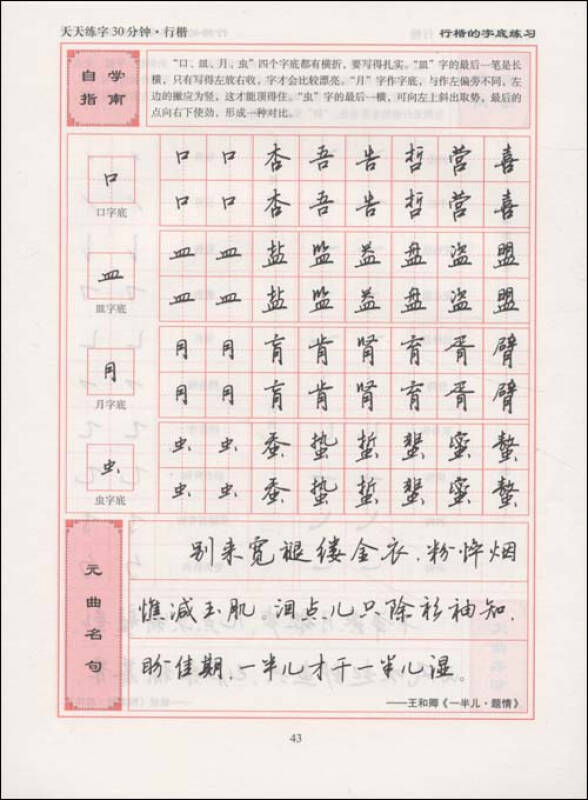 天天练字30分钟·行楷
行楷的字底练习
自学
指南
“口、皿、月、虫”四个字底都有横折，要写得扎实。“皿”字的最后一笔是长
横，只有写得左放右收，字才会比较漂亮。“月”字作字底，与作左偏旁不同，左
边的撇应为竖，这才能顶得住。“虫”字的最后一横，可向左上斜出取势，最后的
点向右下使劲，形成一种对比。
口
口字底
口 口 杏 吾 告 哲 营 喜
口 口 杏 吾 告 哲 营 喜
皿
皿字底
皿 皿 盐 监 益 盘 盗 盟
皿 皿 盐 监 益 盘 盗 盟
月
月字底
月 月 肓 肯 肾 育 胥 臂
月 月 肓 肯 肾 育 胥 臂
虫
虫字底
虫 虫 蚕 蛰 蜇 蟹 蜜 螯
虫 虫 蚕 蛰 蜇 蟹 蜜 螯
元曲名句
别来宽褪缕金衣，粉悴烟
憔减玉肌，泪点儿只除衫袖知，
盼佳期，一半儿才干一半儿湿。
——王和卿《一半儿·题情》
43